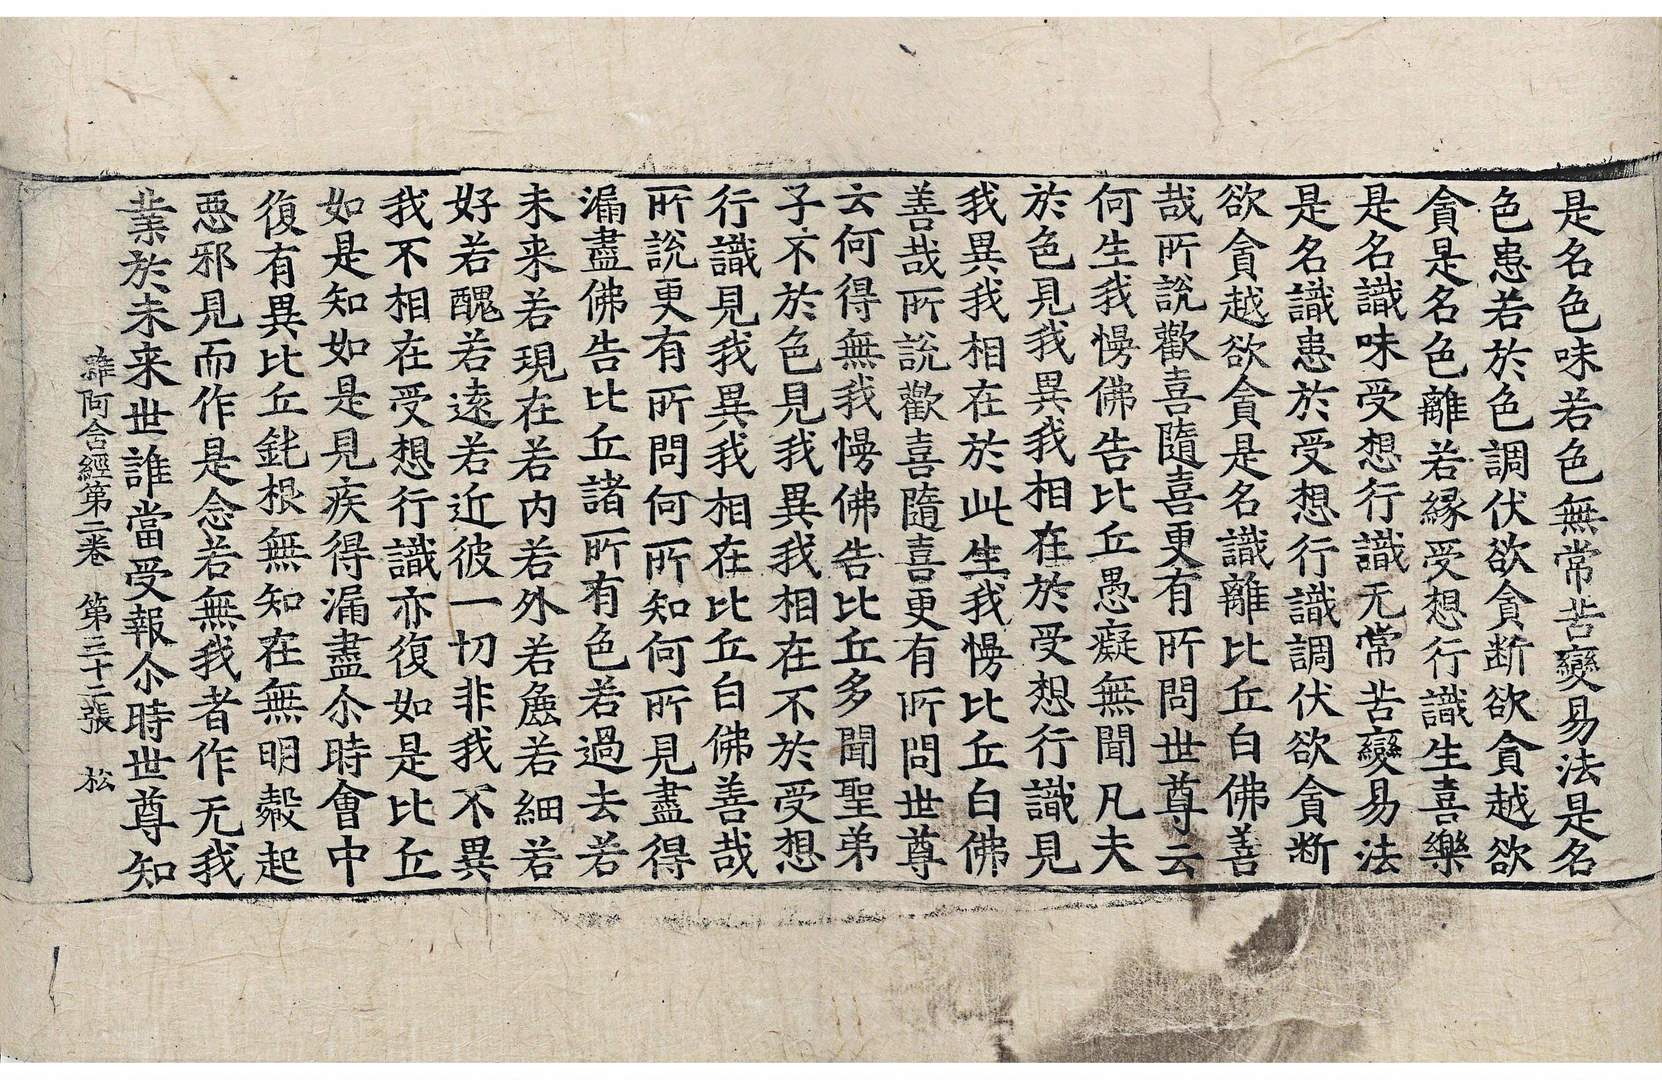 是名色味若色無常苦變易法是名
色患若於色調伏欲貪断欲貪越欲
貪是名色離若縁受想行識生喜樂
是名識味受想行識无常苦變易法
是名識患於受想行識調伏欲貪断
欲貪越欲貪是名識離比丘白佛善
哉所說歡喜隨喜更有所問世尊云
何生我慢佛告比丘愚癡無聞凡夫
於色見我異我相在於受想行識見
我異我相在於此生我慢比丘白佛
善哉所說歡喜隨喜更有所問世尊
云何得無我慢佛告比丘多聞聖弟
子不於色見我異我相在不於受想
行識見我異我相在比丘白佛善哉
所說更有所問何所知何所見盡得
漏盡佛告比丘諸所有色若過去若
未来若現在若内若外若麁若細若
好若醜若遠若近彼一切非我不異
我不相在受想行識亦復如是比丘
如是知如是見疾得漏盡尒時會中
復有異比丘鈍根無知在無明㲉起
惡邪見而作是念若無我者作无我
業於未来世誰當受報尒時世尊知
雜阿含經第二卷　第三十二張　松